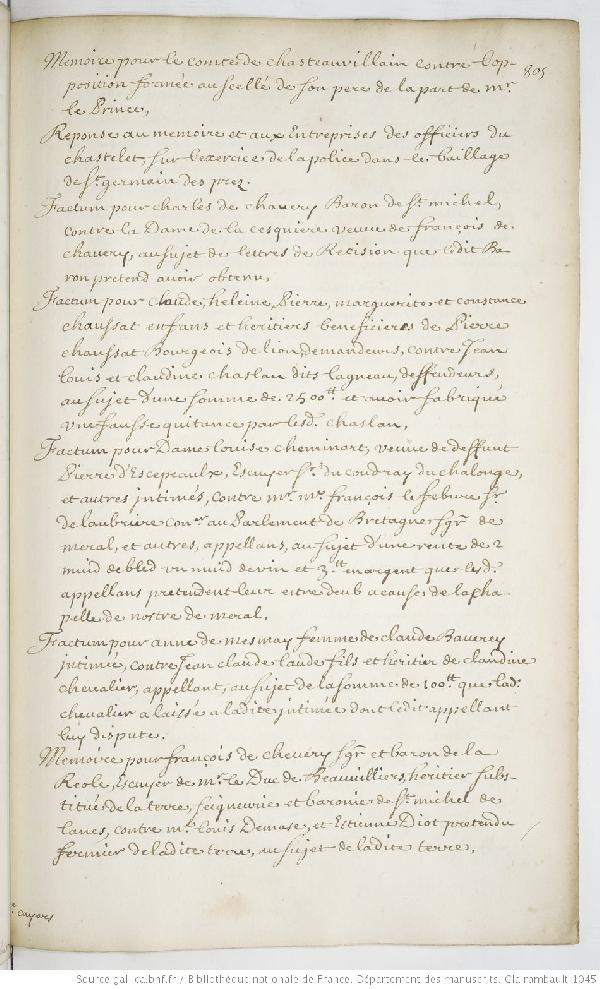 805
Memoire pour le comte de chasteauvillain contre l'op-
position formée au scellé de son pere de la part de mr.
le Prince,
Reponse au memoire et aux Entreprises des officiers du
chastelet, sur l'exercice de la police dans le baillage
de St. germain des prez.
Factum pour charles de chavery Baron de St. michel,
contre la Dame de la cesquiere veuve de françois de
chavery, au sujet de lettres de Recision que ledit Ba-
ron pretend avoir obtenu,
Factum pour claude, heleine, Pierre, marguerite et constance
chaussat enfans et heritiers beneficieres de Pierre
chaussat Bourgeois de lion, demandeurs, contre Jean
louis et claudine chaslan dits lagneau, deffendeurs,
au sujet d'une somme de 2500tt et avoir fabriqué
une fausse quitance par lesd. chaslan,
Factum pour Dame louise cheminart, veuve de deffunt
Pierre d'Escepeaulx, Escuyer Sr. du coudray du chalonge,
et autres intimés, contre mr. me françois le febure Sr.
de laubriere conr. au Parlement de Bretagne sgr de
meral, et autres, appellans, au sujet d'une rente de 2
muid de bled un muid de vin et 3tt en argent que lesd.
appellans pretendent leur estre deub a cause de la cha-
pelle de nostre de meral.
Factum pour anne de mesmay femme de claude Baverey
intimée, contre Jean claude laude fils et heritier de claudine
chevalier, appellant, au sujet de la somme de 100tt que lad.
chevalier a laissé a ladite intimée dont ledit appellant
luy dispute.
Memoire pour françois de chevery sgr et baron de la
Reole, Escuyer de mr. le Duc de Beauvilliers, heritier subs-
titué de la terre, seigneurie et baronie de St. michel de
lanes, contre mr. louis Demase, et Estienne Diot pretendu
fermier de ladite terre, au sujet de ladite terre,
cayers
Source gallica.bnf.fr / Bibliothèque nationale de France. Département des manuscrits. Clairambault 1045